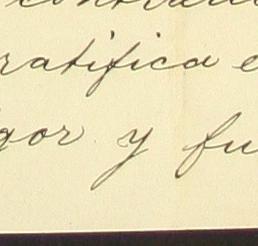 ratifica e
gor y fu